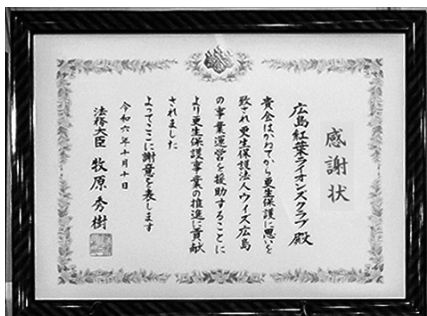 感謝状
広島紅葉ライオンズクラブ殿
貴会はかねてから更生保護に思いを
致され更生保護法人ウィズ広島
の事業運営を援助することに
より更生保護事業の推進に貢献
されました
よってここに謝意を表します
令和六年十月十日
法務大臣 牧原秀樹